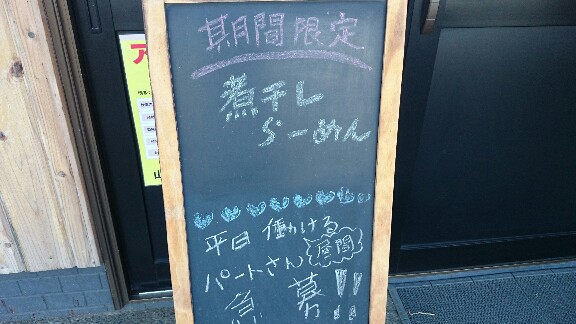 期間限定
煮干し
らーめん
平日 働ける
昼間
パートさん
急 募!!
ア
山